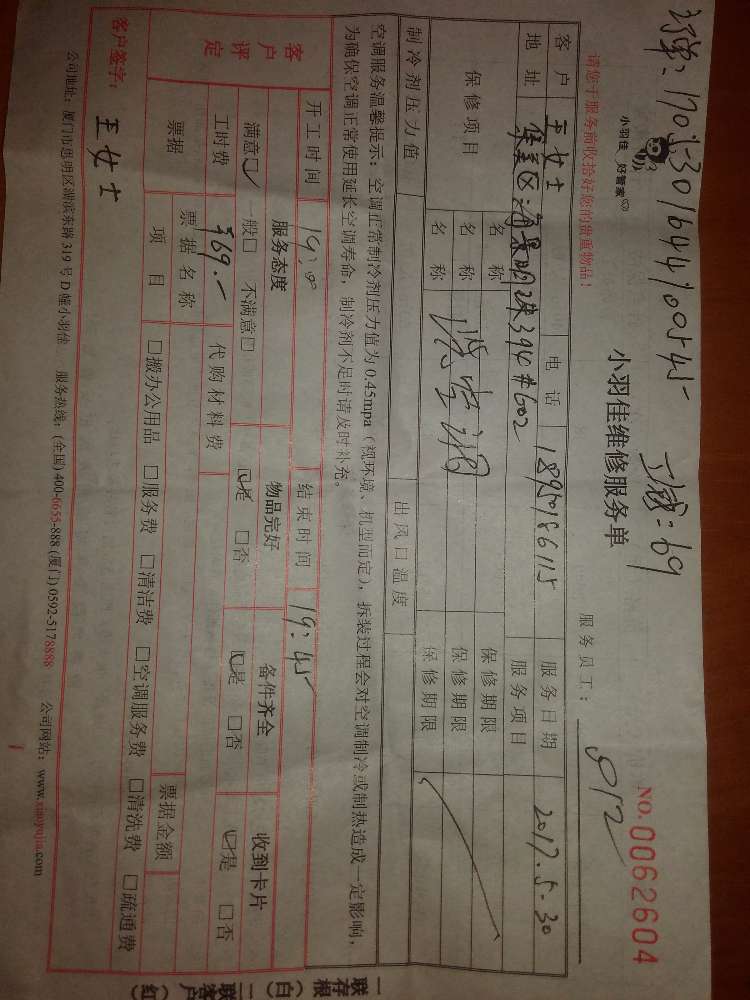 订单:170530164470545 立减:69
小羽佳 好管家
小羽佳维修服务单
NO.0062604
请您于服务前收拾好您的贵重物品!
服务员工: 912
客户 王女士 电话 18950186115 服务日期 2017.5-30
地址 海景明珠394#602 服务项目
保修项目 名称 保修期限
名称 保修期限
名称 保修期限
制冷剂压力值 出风口温度
空调服务温馨提示:空调正常制冷剂压力值为0.45mpa(视环境、机型而定),拆装过程会对空调制冷或制热造成一定影响,
为确保空调正常使用延长空调寿命,制冷剂不足时请及时补充。
开工时间 结束时间 19:45
客户评定 服务态度 物品完好 备件齐全 收到卡片
满意☑ 一般□ 不满意□ ☑是 □否 ☑是 □否 ☑是 □否
工时费 ¥69.- 代购材料费
票据 票据名称 票据金额
项目 □搬办公用品 □服务费 □清洁费 □空调服务费 □清洗费 □疏通费
客户签字: 王女士
公司地址:厦门市思明区湖滨东路319号D幢小羽佳 服务热线:(全国)400-6655-888(厦门)0592-5178888 公司网站:www.xiaoyujia.com
一联存根(白) 二联客户(红)